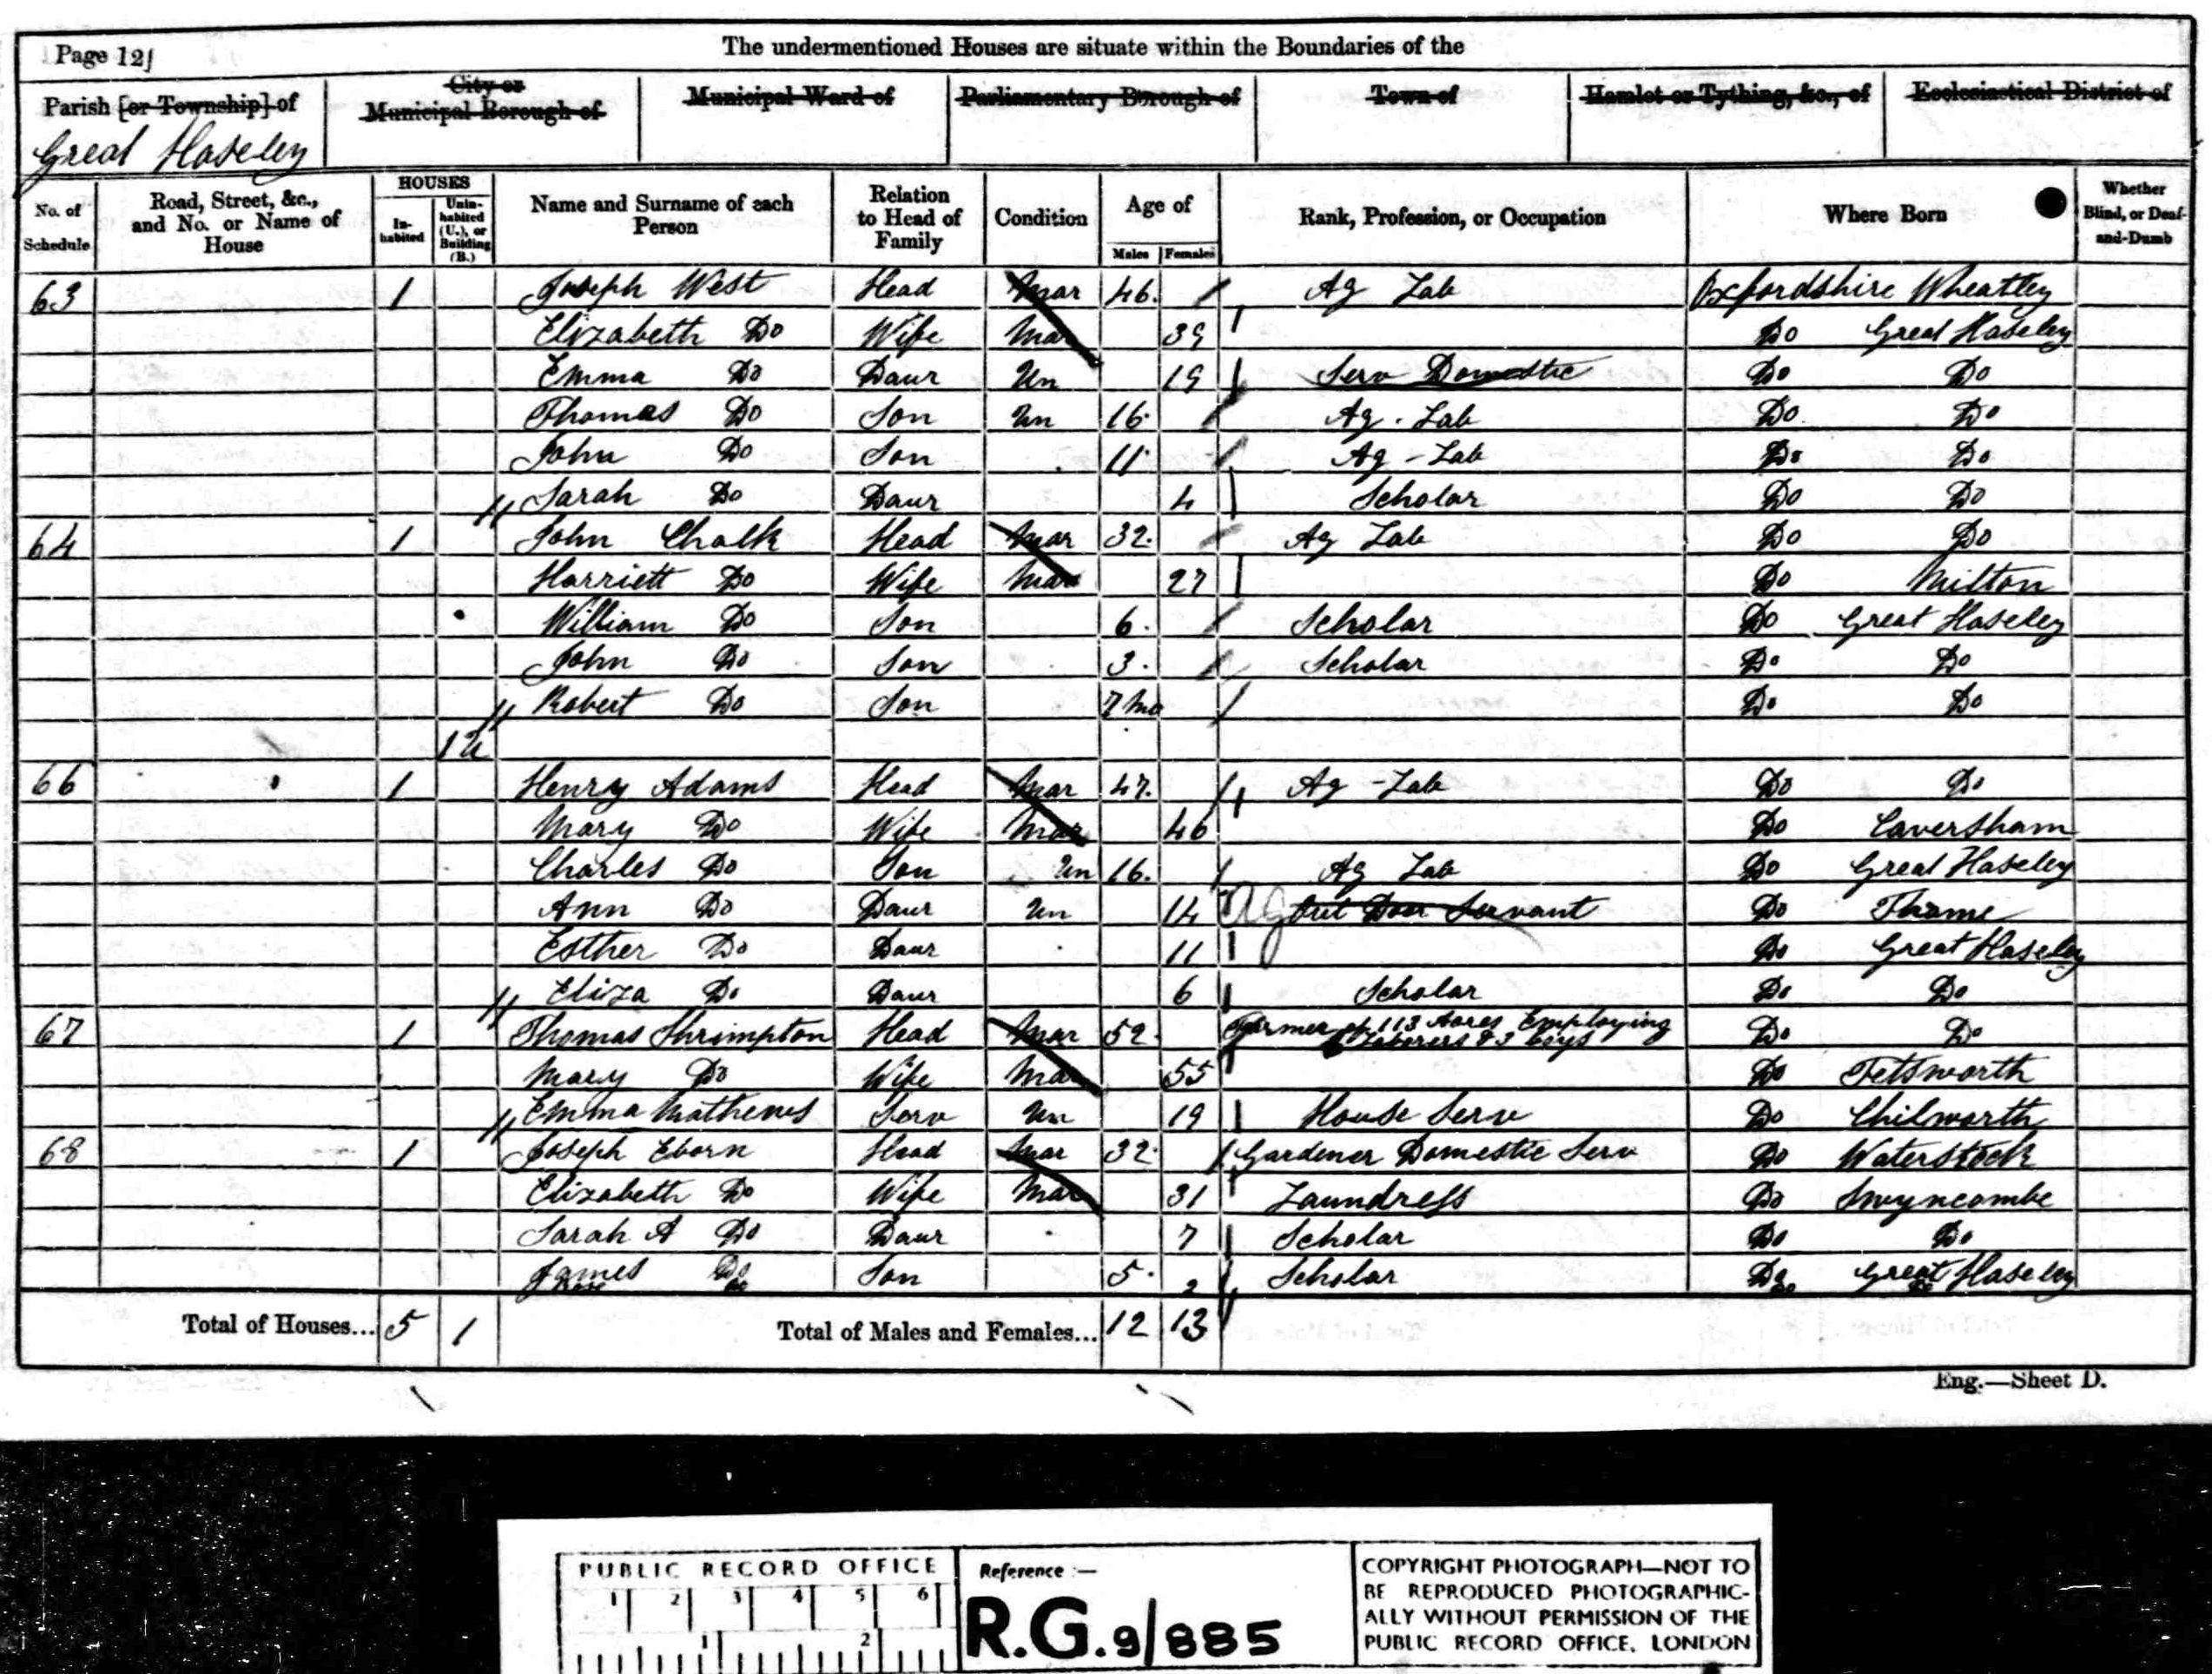 Page 12
The undermentioned Houses are situate within the Boundaries of the
Parish [or Township] of
City or Municipal Borough of
Municipal Ward of
Parliamentary Borough of
Town of
Hamlet or Tything, &c., of
Ecclesiastical District of
Great Haseley
No. of Schedule
Road, Street, &c., and No. or Name of House
HOUSES
Inhabited
Uninhabited (U.), or Building (B.)
Name and Surname of each Person
Relation to Head of Family
Condition
Age of
Males Females
Rank, Profession, or Occupation
Where Born
Whether Blind, or Deaf-and-Dumb
63 1 Joseph West Head Mar 46 Ag Lab Oxfordshire Wheatley
Elizabeth Do Wife Mar 39 Do Great Haseley
Emma Do Daur Un 19 Serv Domestic Do Do
Thomas Do Son Un 16 Ag. Lab Do Do
John Do Son 11 Ag - Lab Do Do
Sarah Do Daur 4 Scholar Do Do
64 1 John Chalk Head Mar 32 Ag Lab Do Do
Harriett Do Wife Mar 27 Do Milton
William Do Son 6 Scholar Do Great Haseley
John Do Son 3 Scholar Do Do
Robert Do Son 7 Mo Do Do
1 U
66 1 Henry Adams Head Mar 47 Ag - Lab Do Do
Mary Do Wife Mar 46 Do Caversham
Charles Do Son Un 16 Ag Lab Do Great Haseley
Ann Do Daur Un 14 Ag Out Door Servant Do Thame
Esther Do Daur 11 Do Great Haseley
Eliza Do Daur 6 Scholar Do Do
67 1 Thomas Shrimpton Head Mar 52 Farmer of 113 Acres Employing Laborers & 3 boys Do Do
Mary Do Wife Mar 55 Do Tetsworth
Emma Mathews Serv Un 19 House Serv Do Chilworth
68 1 Joseph Eborn Head Mar 32 Gardener Domestic Serv Do Waterstock
Elizabeth Do Wife Mar 31 Laundress Do Swyncombe
Sarah A Do Daur 7 Scholar Do Do
James Do Son 5 Scholar Do Great Haseley
Do 2 Do Do
Total of Houses... 5 1 Total of Males and Females... 12 13
Eng.—Sheet D.
PUBLIC RECORD OFFICE
1 2 3 4 5 6
1 2
Reference :—
R.G. 9/885
COPYRIGHT PHOTOGRAPH—NOT TO
BE REPRODUCED PHOTOGRAPHIC-
ALLY WITHOUT PERMISSION OF THE
PUBLIC RECORD OFFICE, LONDON